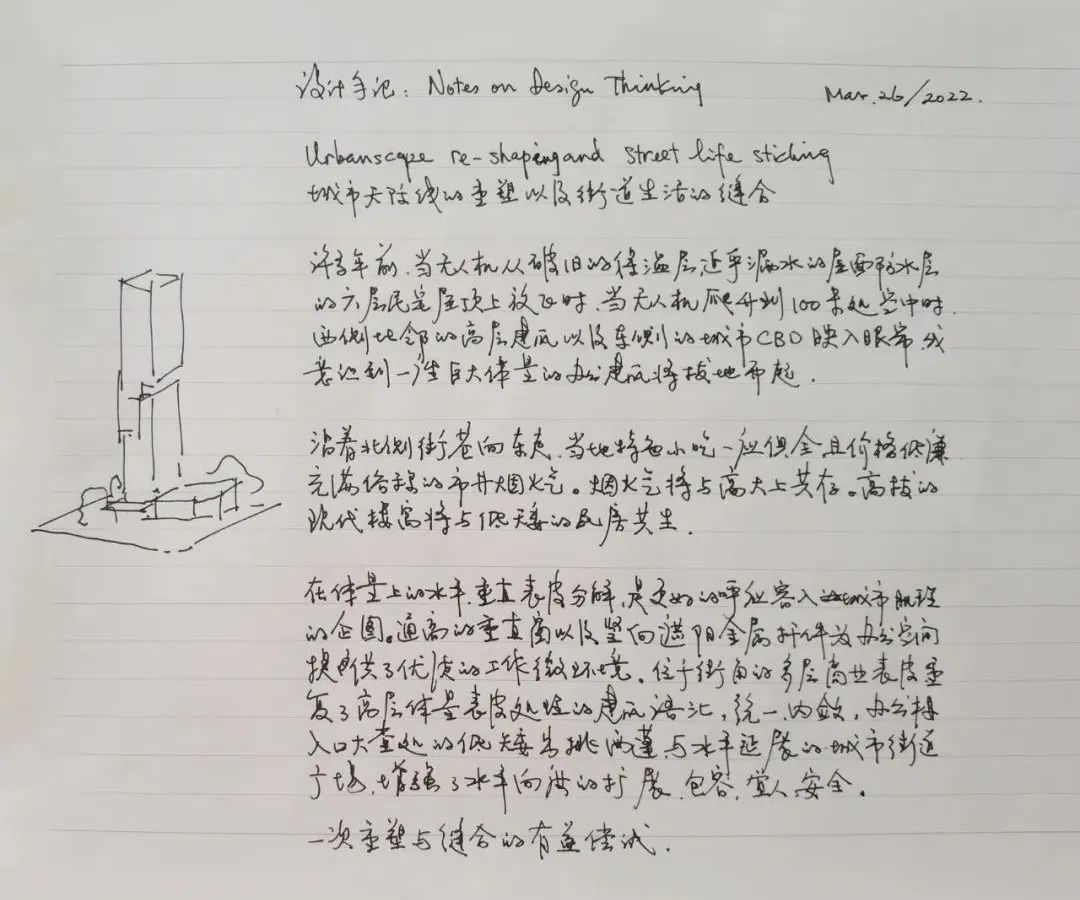 设计手记: Notes on Design Thinking Mar.26/2022.
Urbanscape re-shaping and street life stiching
城市天际线的重塑以及街道生活的缝合
许多年前,当无人机从破旧的保温层近乎漏水的屋面防水层
的六层民宅屋顶上放飞时,当无人机爬升到100米处空中时,
西侧比邻的高层建筑以及东侧的城市CBD映入眼帘,我
意识到一座巨大体量的办公建筑将拔地而起.
沿着北侧街巷向东走,当地特色小吃一应俱全且价格低廉
充满俗撩的市井烟火气。烟火气将与高大上共存。高拔的
现代楼宇将与低矮的民居共生.
在体量上的水平,垂直表皮分解,是更好的呼应容入城市肌理
的企图。通高的垂直窗以及竖向遮阳金属杆件为办公空间
提供了优质的工作微环境.位于街角的多层商业表皮重
复了高层体量表皮处理的建筑语汇,统一,内敛,办公楼
入口大堂处的低矮出挑雨蓬与水平延展的城市街道
广场,增强了水平向度的扩展,包容,宜人,安全.
一次重塑与缝合的有益偿试.